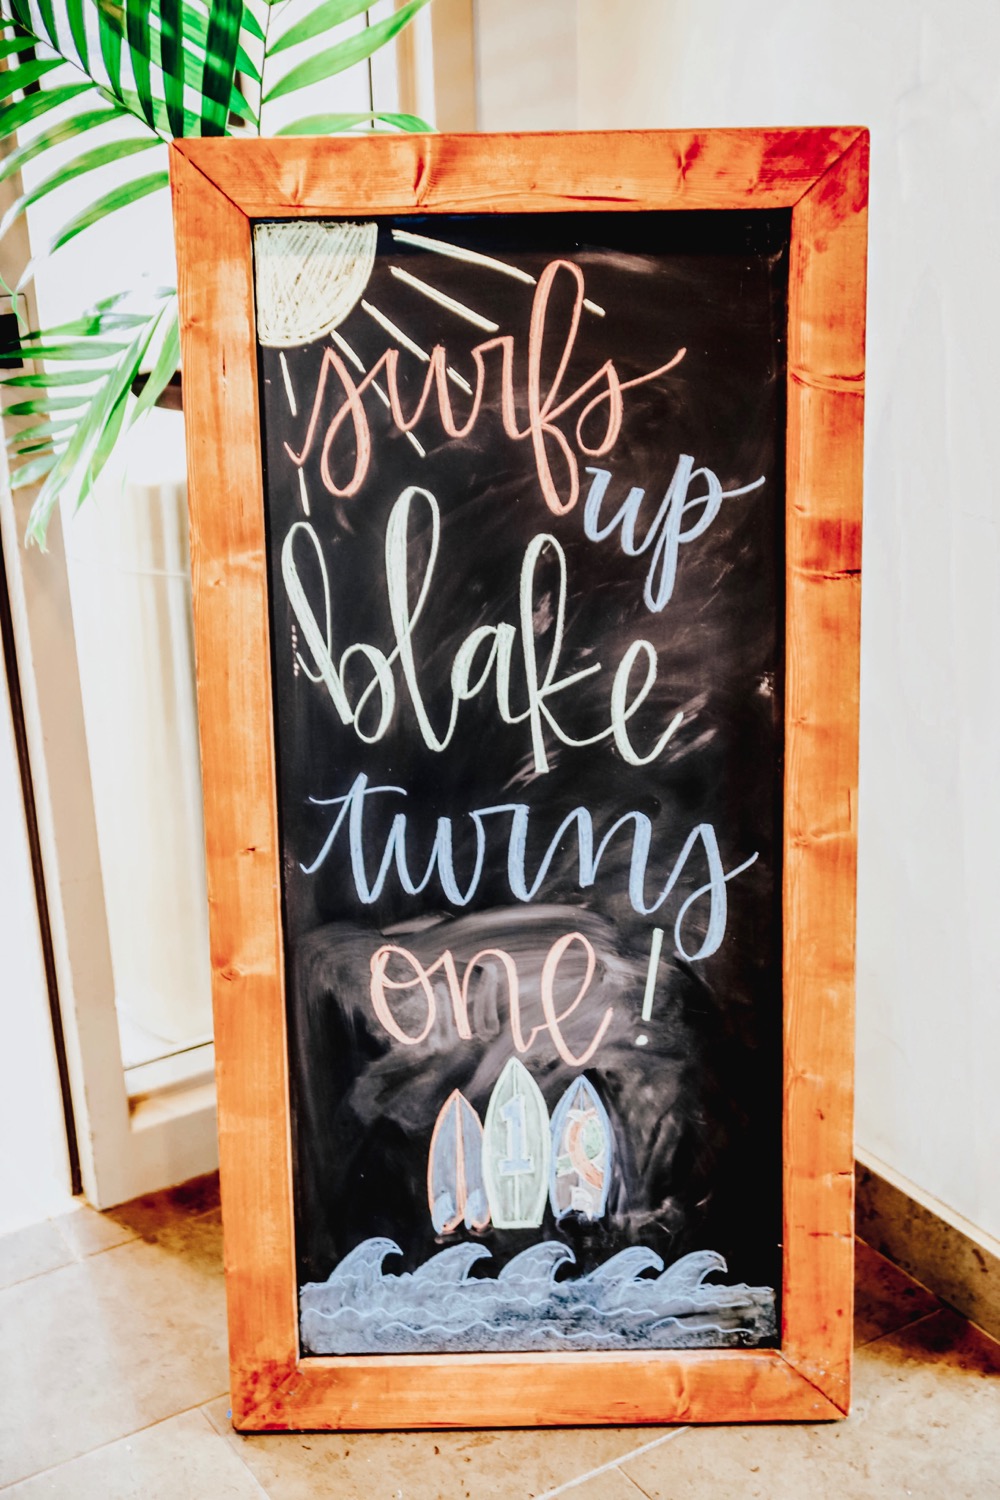 surfs
up
blake
turns
one!
1